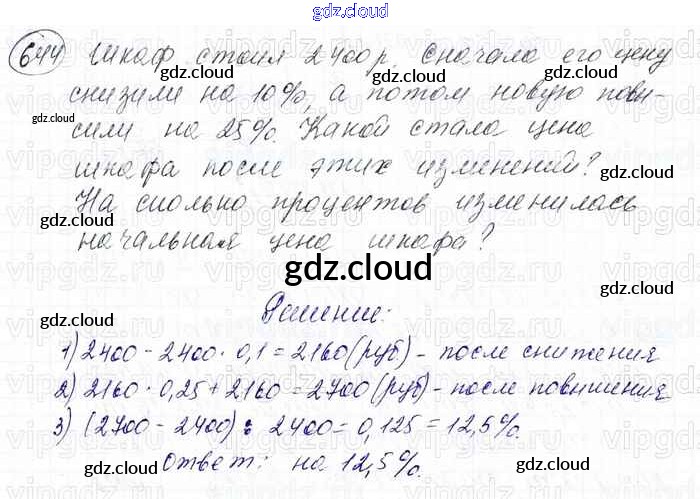 gdz.cloud
644 Шкаф стоил 2400 р. Сначала его цену
gdz.cloud gdz.cloud
снизили на 10%, а потом новую повы-
gdz.cloud
сили на 25%. Какой стала цена
gdz.cloud
шкафа после этих изменений?
На сколько процентов изменилась
gdz.cloud gdz.cloud
начальная цена шкафа?
gdz.cloud
gdz.cloud
Решение:
gdz.cloud
1) 2400 - 2400 · 0,1 = 2160 (руб) - после снижения
gdz.cloud
2) 2160 · 0,25 + 2160 = 2700 (руб) - после повышения
gdz.cloud
3) (2700 - 2400) : 2400 = 0,125 = 12,5%.
Ответ: на 12,5%.
gdz.cloud gdz.cloud